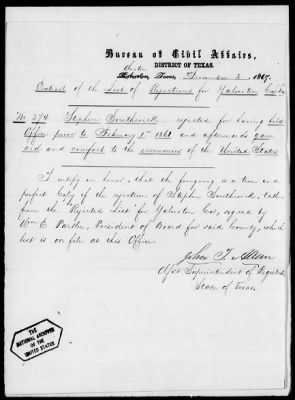 Bureau of Civil Affairs,
DISTRICT OF TEXAS.
Austin
Galveston, Texas, December 2, 1867.
Extract of the List of Rejections for Galveston Co. Tx
No 274 Stephen Southwick rejected for having held
Office prior to February 1st 1861 and afterwards gave
aid and comfort to the enemies of the United States
I certify on honor, that the foregoing is a true and
perfect Copy of the rejection of Stephen Southwick, taken
from the "Rejected List" for Galveston Co, signed by
Wm E. Parker, President of Board for said County, which
list is on file at this Office.
John T. Allan
Supervisor of Registration
State of Texas.
THE
NATIONAL ARCHIVES
OF THE
UNITED STATES